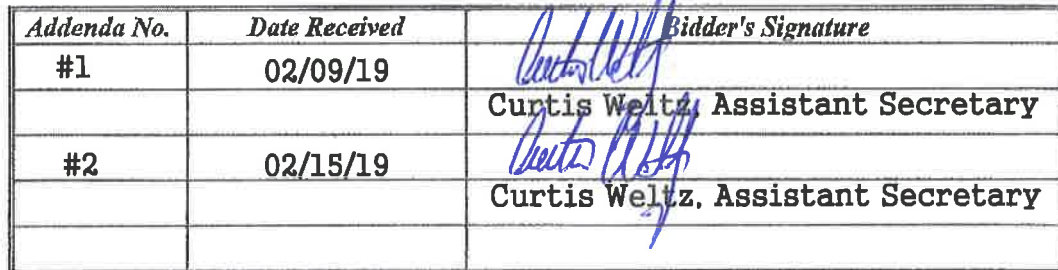 Addenda No. Date Received Bidder's Signature
#1 02/09/19 Curtis Weltz
Curtis Weltz, Assistant Secretary
#2 02/15/19 Curtis Weltz
Curtis Weltz, Assistant Secretary